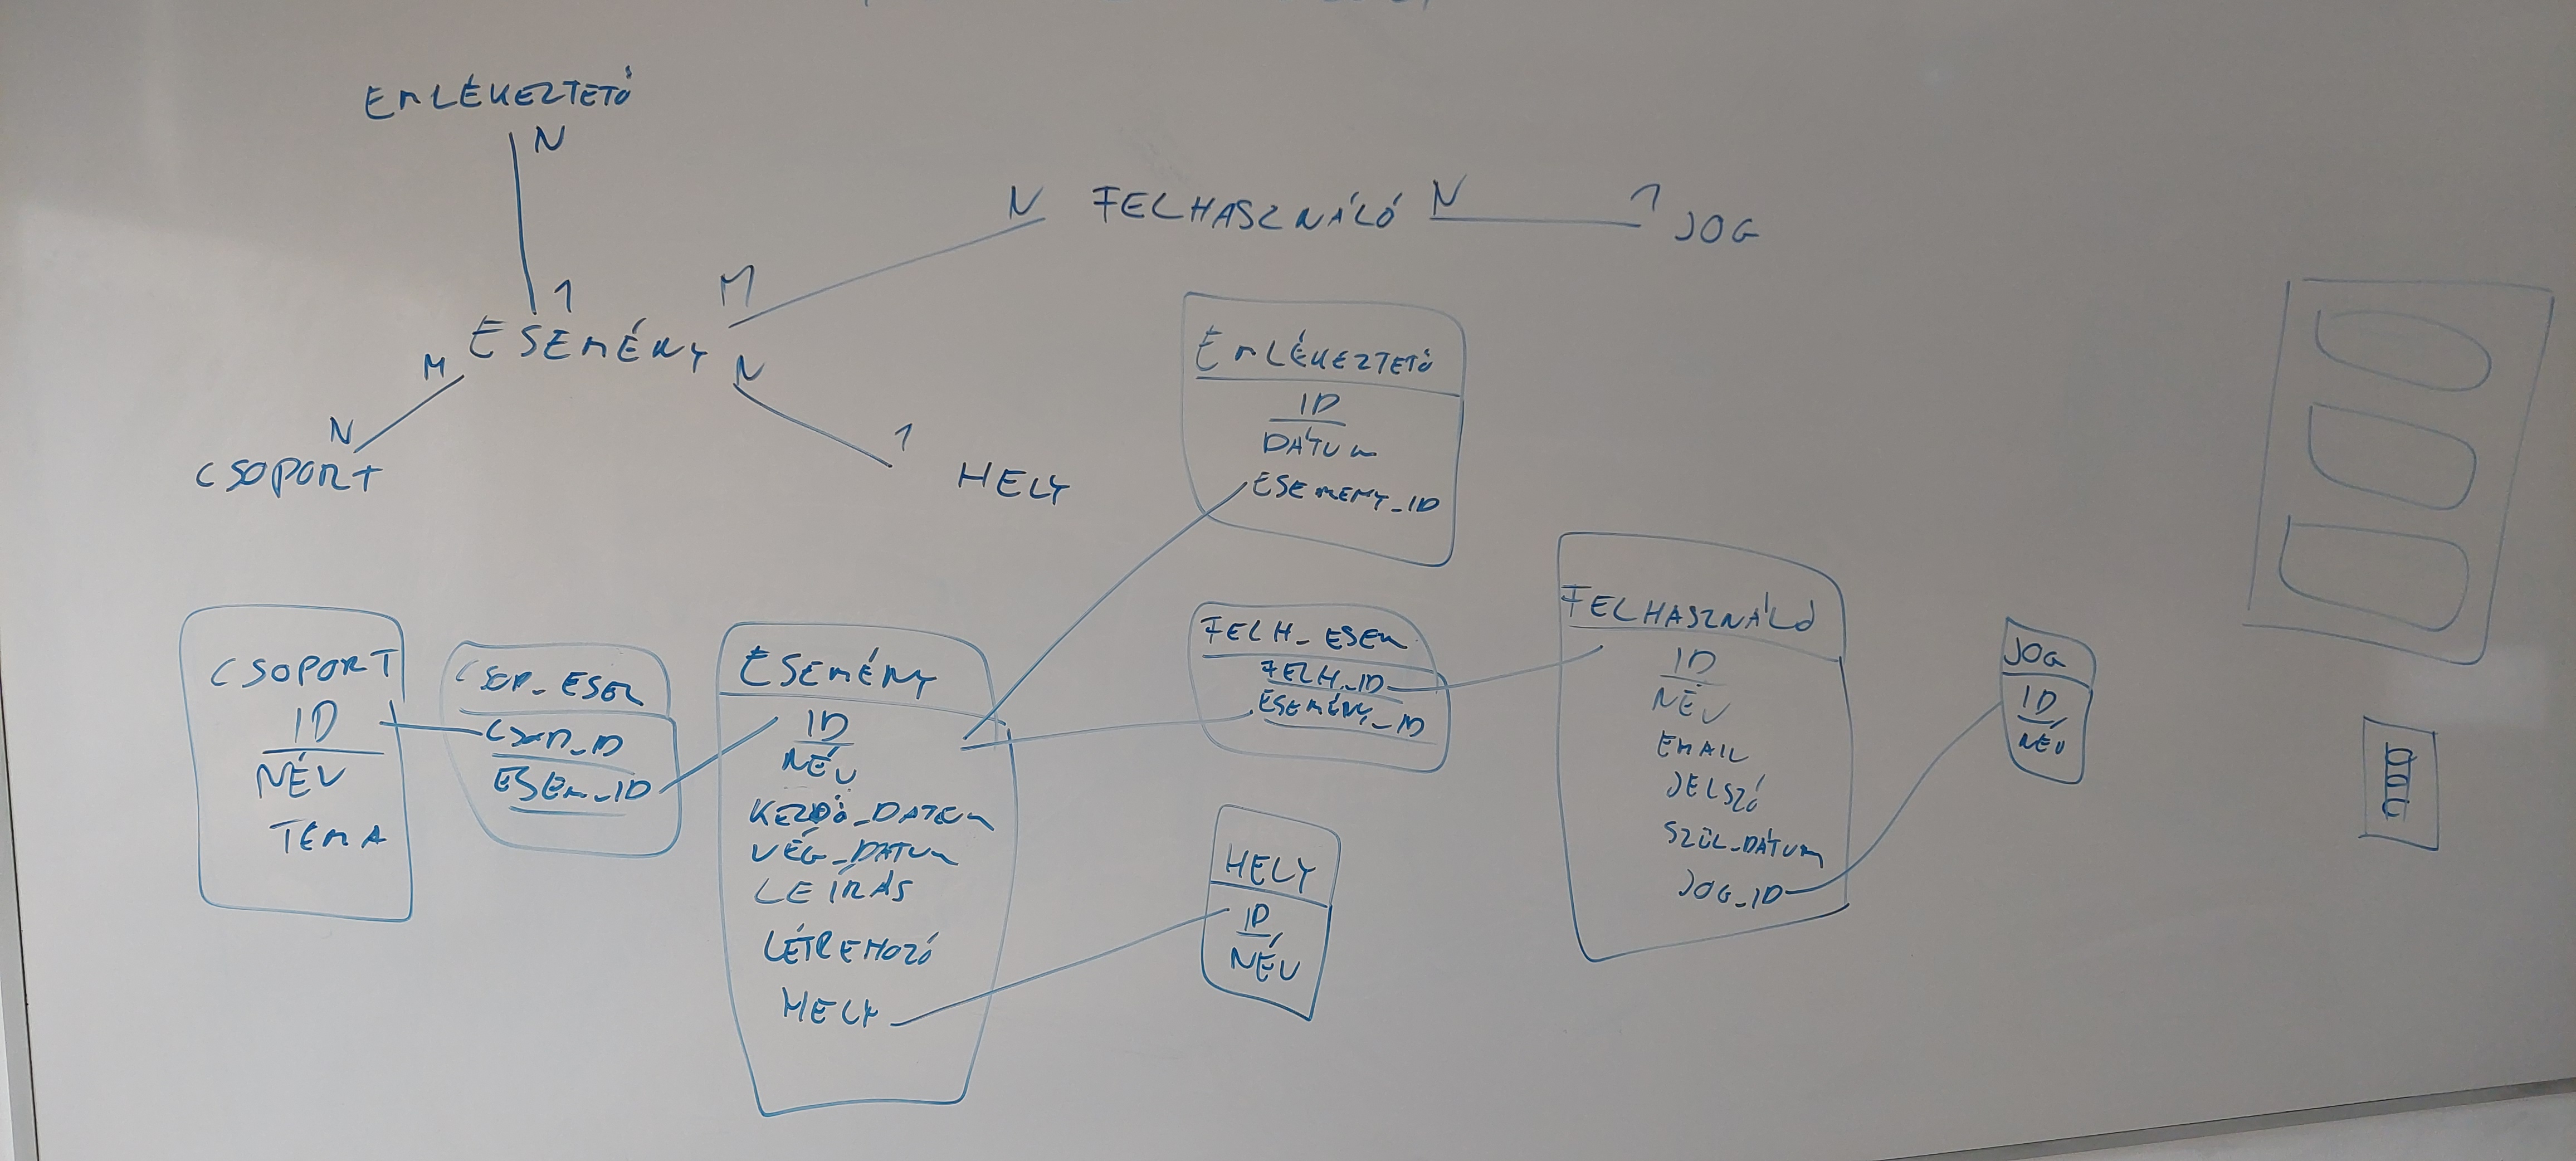 EMLÉKEZTETŐ
N
N FELHASZNÁLÓ N 1 JOG
1 M
ESEMÉNY
M N
N 1
CSOPORT HELY
EMLÉKEZTETŐ
ID
DÁTUM
ESEMENY_ID
CSOPORT
ID
NÉV
TEMA
CSOP_ESEM
CSOP_ID
ESEM_ID
ESEMÉNY
ID
NÉV
KEZDŐ_DATUM
VÉG_DATUM
LEÍRÁS
LÉTREHOZÓ
HELY
FELH_ESEM
FELH_ID
ESEMÉNY_ID
HELY
ID
NÉV
FELHASZNÁLÓ
ID
NÉV
EMAIL
JELSZÓ
SZÜL_DÁTUM
JOG_ID
JOG
ID
NÉV